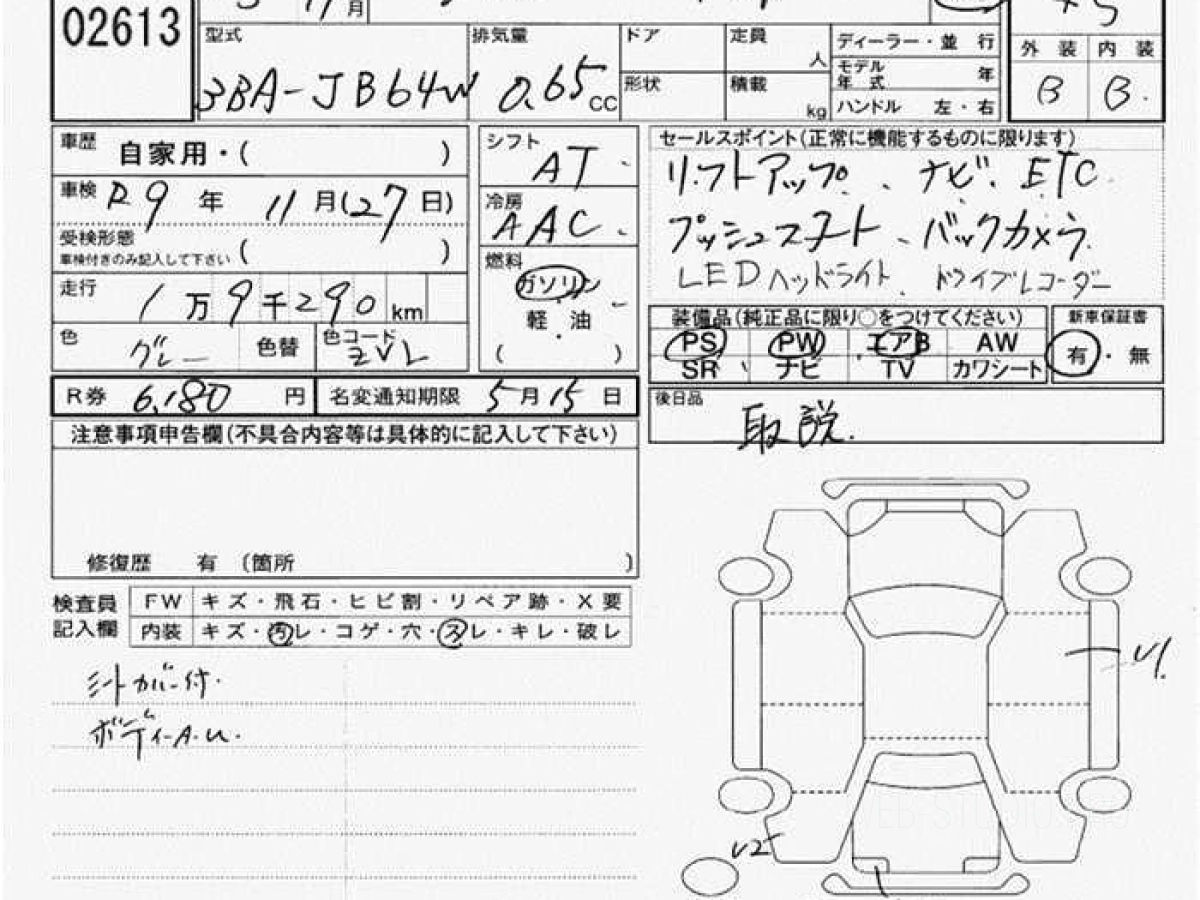 02613
月
型式
3BA-JB64W
排気量
0.65 CC
ドア
形状
定員
人
積載
kg
ディーラー・並 行
モデル年式 年
ハンドル 左・右
外 装
内 装
B
B.
車歴 自家用・( )
車検 R9 年 11 月(27 日)
受検形態 ( )
車検付きのみ記入して下さい
走行 1 万 9 千 290 km
色 グレー
色替
色コード ZVL
シフト
AT
冷房
AAC
燃料
ガソリン
軽・油
( )
セールスポイント(正常に機能するものに限ります)
リフトアップ、ナビ、ETC
プッシュスタート、バックカメラ
LEDヘッドライト、ドライブレコーダー
装備品(純正品に限り○をつけてください)
PS PW エアB AW
SR ナビ TV カワシート
新車保証書
有・無
R券 6,180 円
名変通知期限 5月15日
後日品
取説.
注意事項申告欄(不具合内容等は具体的に記入して下さい)
修復歴 有 〔箇所 〕
検査員
記入欄
FW キズ・飛石・ヒビ割・リペア跡・X要
内装 キズ・汚レ・コゲ・穴・スレ・キレ・破レ
シートカバー付.
ボディA.U.
U1.
U2